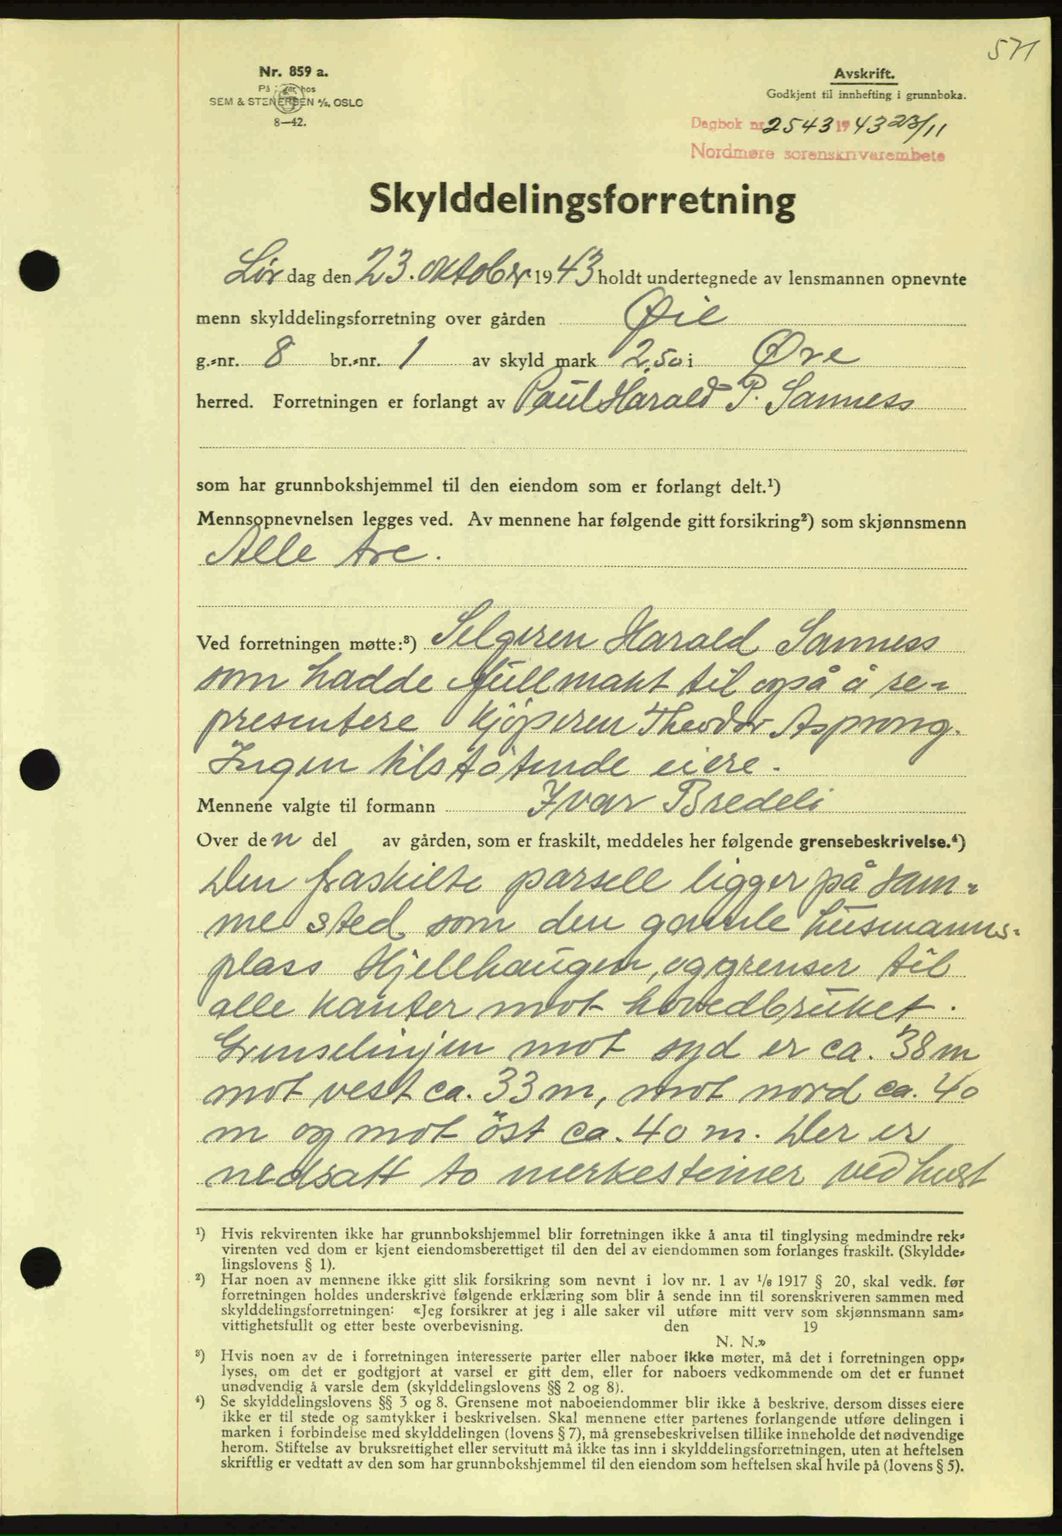 571
Nr. 859 a.
SEM & STENERSEN A/S, OSLO
8—42.
Avskrift.
Godkjent til innhefting i grunnboka.
Dagbok nr. 2543 1943 23/11
Nordmøre sorenskriverembete
Skylddelingsforretning
Lørdag den 23. oktober 1943 holdt undertegnede av lensmannen opnevnte
menn skylddelingsforretning over gården Øie
g.-nr. 8 br.-nr. 1 av skyld mark 2,50 i Øre
herred. Forretningen er forlangt av Paul Harald P. Sanness
som har grunnbokshjemmel til den eiendom som er forlangt delt.¹)
Mennsopnevnelsen legges ved. Av mennene har følgende gitt forsikring²) som skjønnsmenn
Alle tre.
Ved forretningen møtte:³) Selgeren Harald Sanness
som hadde fullmakt til også å re-
presentere kjöperen Theodor Asprong.
Ingen tilstötende eiere.
Mennene valgte til formann Ivar Bredeli
Over den del av gården, som er fraskilt, meddeles her følgende grensebeskrivelse.⁴)
Den fraskilte parsell ligger på sam-
me sted som den gamle husmanns-
plass Hjellhaugen, og grenser til
alle kanter mot hovedbruket.
Grenselinjen mot syd er ca. 38 m
mot vest ca. 33 m, mot nord ca. 40
m og mot öst ca. 40 m. Der er
nedsatt to merkesteiner ved hvert
¹) Hvis rekvirenten ikke har grunnbokshjemmel blir forretningen ikke å anta til tinglysing medmindre rek-
virenten ved dom er kjent eiendomsberettiget til den del av eiendommen som forlanges fraskilt. (Skyldde-
lingslovens § 1).
²) Har noen av mennene ikke gitt slik forsikring som nevnt i lov nr. 1 av 1/6 1917 § 20, skal vedk. før
forretningen holdes underskrive følgende erklæring som blir å sende inn til sorenskriveren sammen med
skylddelingsforretningen: «Jeg forsikrer at jeg i alle saker vil utføre mitt verv som skjønnsmann sam-
vittighetsfullt og etter beste overbevisning. den 19
N. N.»
³) Hvis noen av de i forretningen interesserte parter eller naboer ikke møter, må det i forretningen opp-
lyses, om det er godtgjort at varsel er gitt dem, eller for naboers vedkommende om det er funnet
unødvendig å varsle dem (skylddelingslovens §§ 2 og 8).
⁴) Se skylddelingslovens §§ 3 og 8. Grensene mot naboeiendommer blir ikke å beskrive, dersom disses eiere
ikke er til stede og samtykker i beskrivelsen. Skal mennene etter partenes forlangende utføre delingen i
marken i forbindelse med skylddelingen (lovens § 7), må grensebeskrivelsen tillike inneholde det nødvendige
herom. Stiftelse av bruksrettighet eller servitutt må ikke tas inn i skylddelingsforretningen, uten at heftelsen
skriftlig er vedtatt av den som har grunnbokshjemmel til den eiendom som heftelsen skal hvile på (lovens § 5).